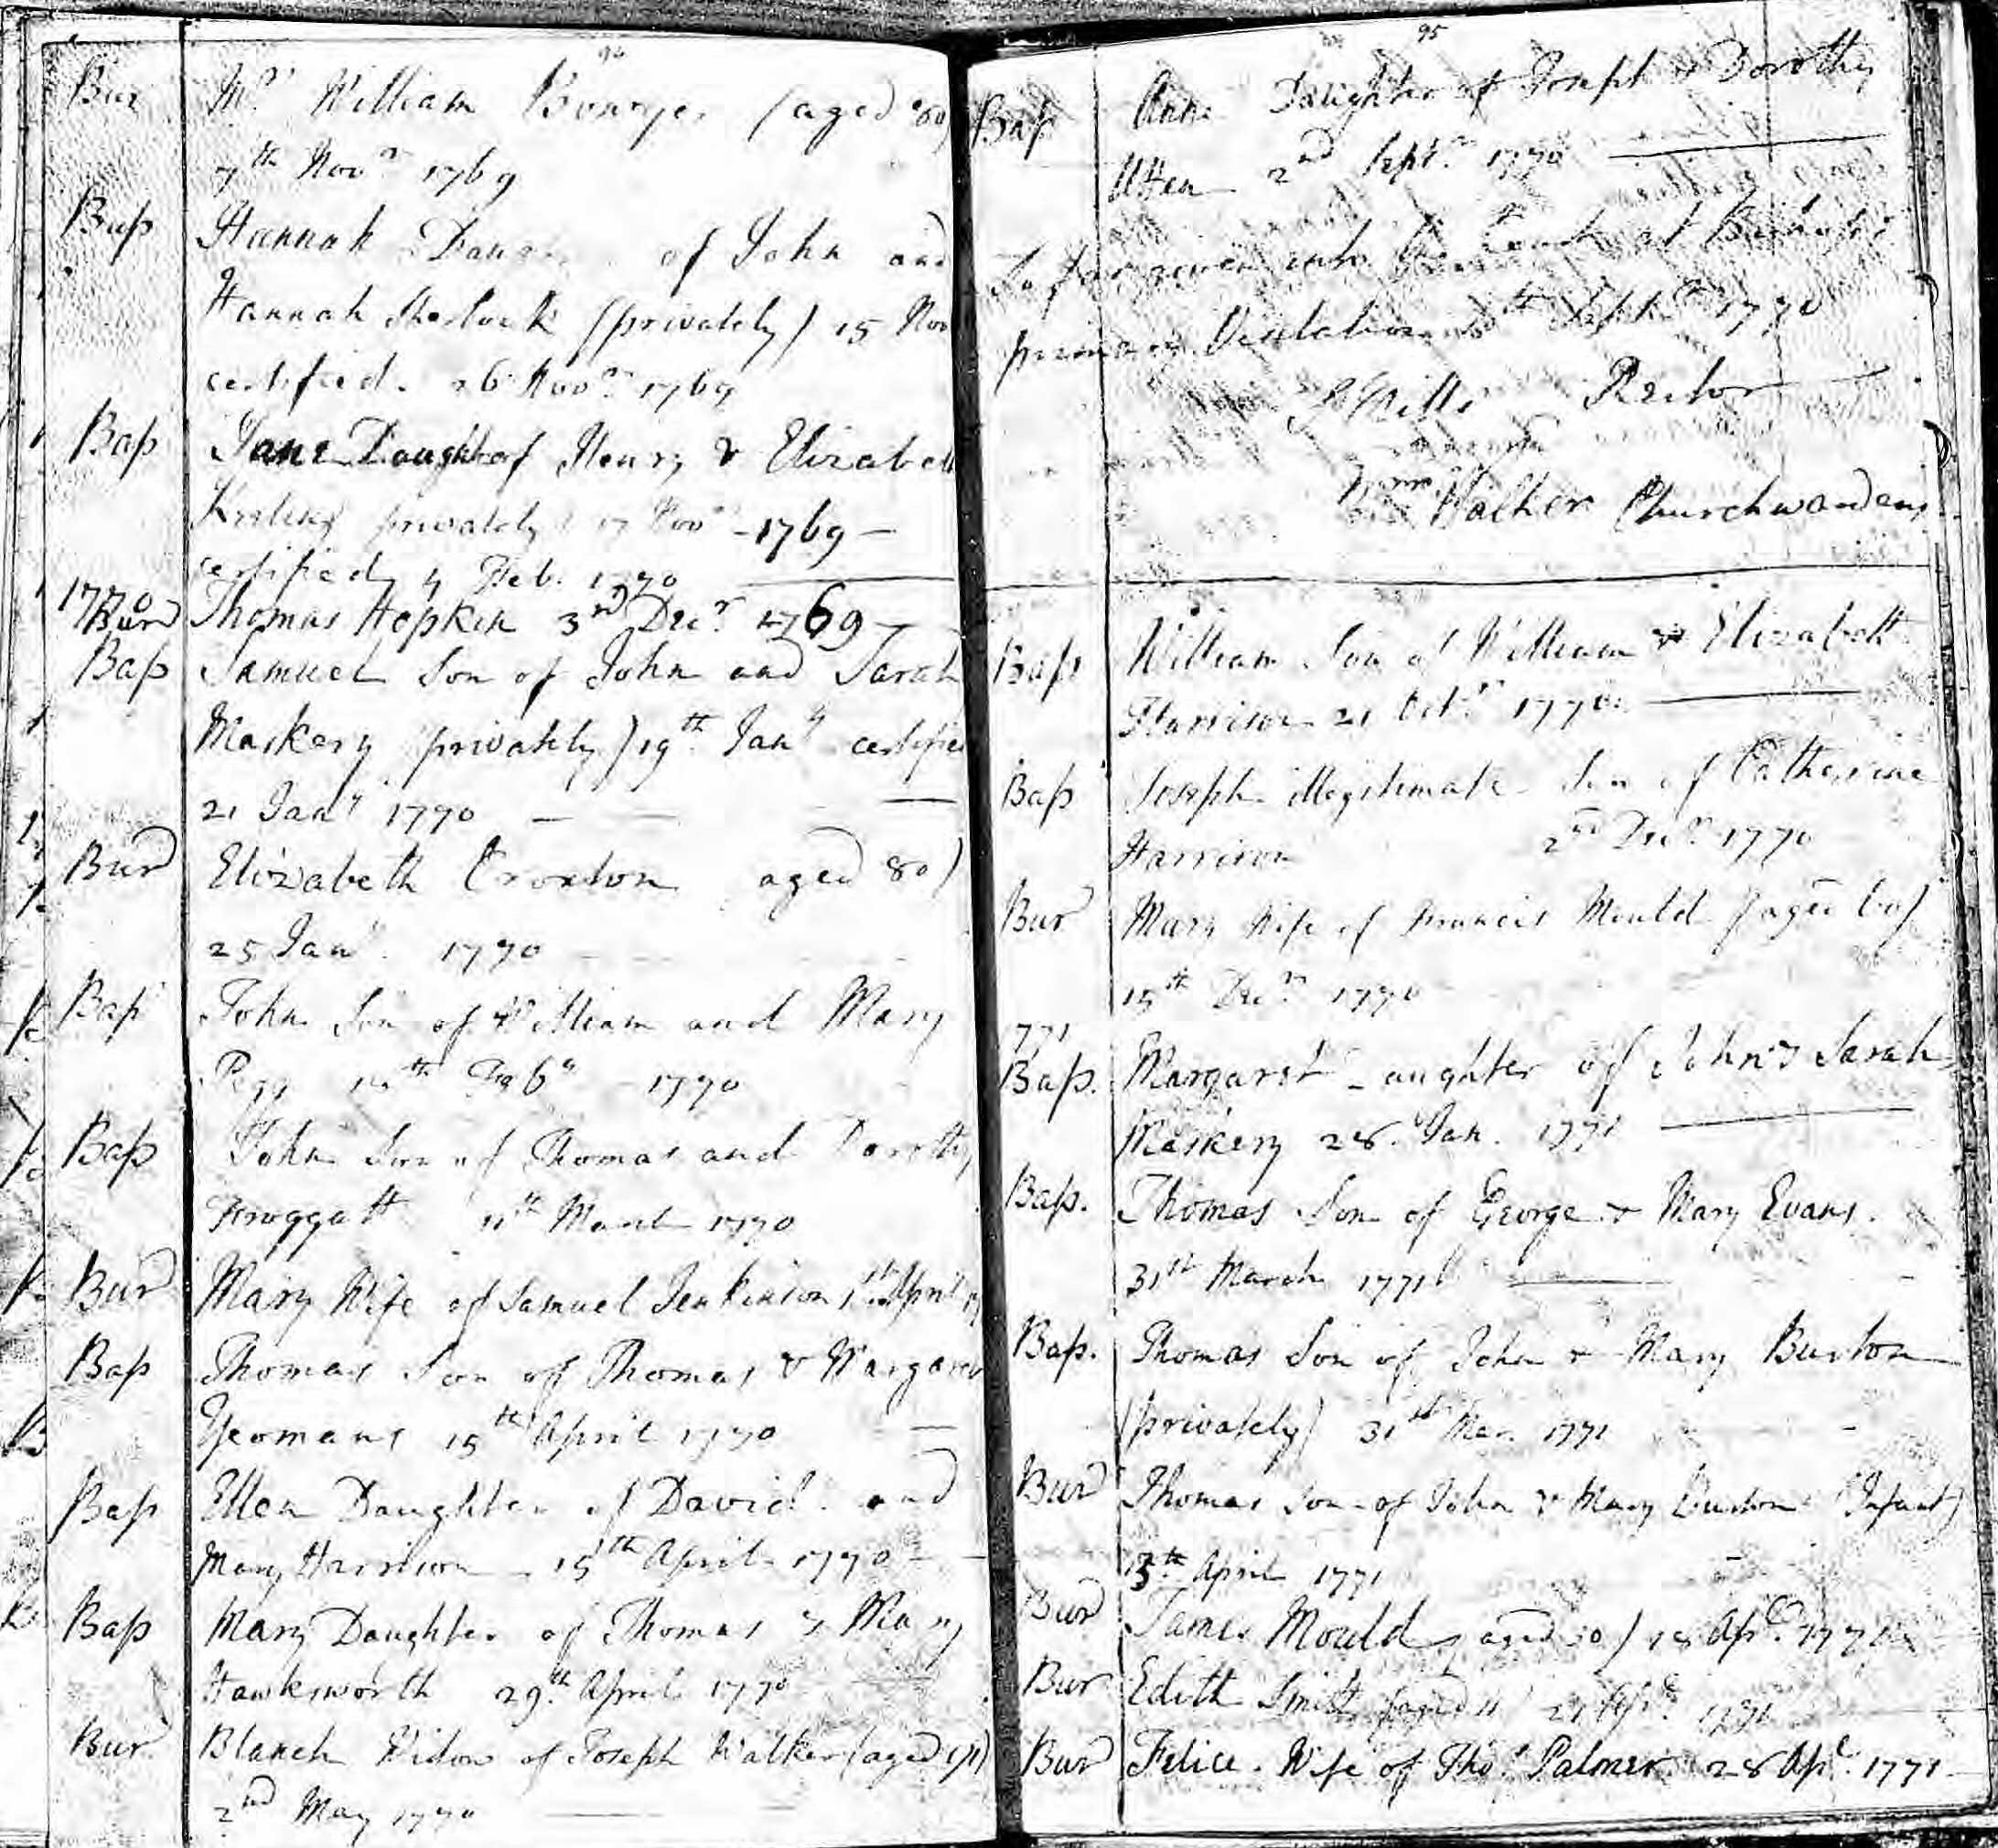 94
Bur Mr William Bowyer (aged 80)
7th Novr 1769
Bap Hannah Daugh of John and
Hannah Sherlock (privately) 15 Nov
certified 26 Novr 1769
Bap Jane Daughter of Henry & Elizabeth
privately 17 Novr 1769
certified 4 Feb. 1770
1770
Bur Thomas Hopkin 3rd Decr 1769
Bap Samuel Son of John and Sarah
Maskery (privately) 19th Jany certified
21 Jany 1770
Bur Elizabeth Croxton aged 80)
25 Jany 1770
Bap John Son of William and Mary
Pegg Feby 1770
Bap John Son of Thomas and Dorothy
Froggatt 11th March 1770
Bur Mary Wife of Samuel Jenkinson April
Bap Thomas Son of Thomas & Margaret
Yeomans 15th April 1770
Bap Ellen Daughter of David and
Mary Harrison 15th April 1770
Bap Mary Daughter of Thomas & Mary
Hawksworth 29th April 1770
Bur Blanch Widow of Joseph Walker (aged
2nd May 1770
95
Bap Ann Daughter of Joseph & Dorothy
Allen 2nd Septr 1770
So far given into the Court at
primary Visitation Septr 1770
Mills Rector
Walker Churchwardens
Bap William Son of William & Elizabeth
Harrison 21 Octr 1770
Bap Joseph illegitimate Son of Catherine
Harrison 2nd Decr 1770
Bur Mary Wife of Francis Mould (aged 60)
15th Decr 1770
1771
Bap. Margaret aughter of John & Sarah
Maskery 28. Jan. 1771
Bap. Thomas Son of George & Mary Evans.
31st March 1771
Bap. Thomas Son of John & Mary Burton
(privately) 31st Mar. 1771
Bur Thomas Son of John & Mary Burton (Infant)
13th April 1771
Bur James Mould aged 18 Apl 1771
Bur Edith Smith (aged Apl 1771
Bur Felice Wife of Thos Palmer 28 Apl 1771